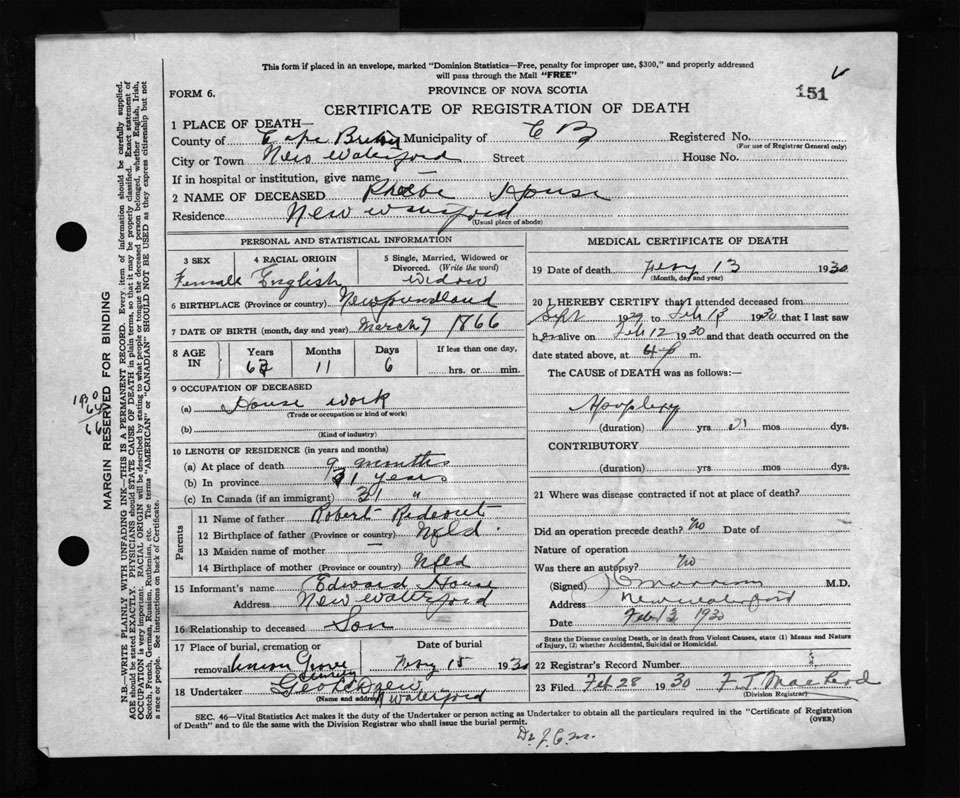 This form if placed in an envelope, marked "Dominion Statistics—Free, penalty for improper use, $300," and properly addressed
will pass through the Mail "FREE"
FORM 6.
PROVINCE OF NOVA SCOTIA
151
CERTIFICATE OF REGISTRATION OF DEATH
1 PLACE OF DEATH—
County of Cape Breton Municipality of C B Registered No.
(For use of Registrar General only)
City or Town New Waterford Street House No.
If in hospital or institution, give name —
2 NAME OF DECEASED Phoebe House
Residence New Waterford
(Usual place of abode)
PERSONAL AND STATISTICAL INFORMATION
3 SEX 4 RACIAL ORIGIN 5 Single, Married, Widowed or Divorced. (Write the word)
Female English Widow
6 BIRTHPLACE (Province or country) Newfoundland
7 DATE OF BIRTH (month, day and year) March 7 1866
8 AGE IN Years Months Days If less than one day,
11 6 hrs. or min.
9 OCCUPATION OF DECEASED
(a) House work
(Trade or occupation or kind of work)
(b)
(Kind of industry)
10 LENGTH OF RESIDENCE (in years and months)
(a) At place of death 9 months
(b) In province 31 years
(c) In Canada (if an immigrant) 31 "
Parents
11 Name of father Robert Rideout
12 Birthplace of father (Province or country) Nfld
13 Maiden name of mother —
14 Birthplace of mother (Province or country) Nfld
15 Informant's name Edward House
Address New Waterford
16 Relationship to deceased Son
17 Place of burial, cremation or Date of burial
removal Union Grove Cemetery 15 1930
18 Undertaker Geo L Drew
(Name and address) N Waterford
MEDICAL CERTIFICATE OF DEATH
19 Date of death 13 1930
(Month, day and year)
20 I HEREBY CERTIFY that I attended deceased from
Sept 1929 to Feb 13 1930 that I last saw
her alive on Feb 12 1930 and that death occurred on the
date stated above, at 4 p m.
The CAUSE of DEATH was as follows:—
Apoplexy
(duration) yrs mos dys.
CONTRIBUTORY
(duration) yrs mos dys.
21 Where was disease contracted if not at place of death?
Did an operation precede death? No Date of
Nature of operation
Was there an autopsy? No
(Signed) M.D.
Address New Waterford
Date Feb 13 1930
State the Disease causing Death, or in death from Violent Causes, state (1) Means and Nature
of Injury, (2) whether Accidental, Suicidal or Homicidal.
22 Registrar's Record Number
23 Filed Feb 28 1930 F J MacLeod
(Division Registrar)
SEC. 46—Vital Statistics Act makes it the duty of the Undertaker or person acting as Undertaker to obtain all the particulars required in the "Certificate of Registration
of Death" and to file the same with the Division Registrar who shall issue the burial permit.
(OVER)
Dr. J. C. M.
MARGIN RESERVED FOR BINDING
N.B.—WRITE PLAINLY WITH UNFADING INK—THIS IS A PERMANENT RECORD. Every item of information should be carefully supplied.
AGE should be stated EXACTLY. PHYSICIANS should STATE CAUSE OF DEATH in plain terms, so that it may be properly classified. Exact statement of
OCCUPATION is very important. RACIAL ORIGIN will be described by stating to what people or tongue the deceased person belonged, whether English, Irish,
Scotch, French, German, Russian, Ruthenian, etc. The terms "AMERICAN" or "CANADIAN" SHOULD NOT BE USED as they express citizenship but not
a race or people. See instructions on back of Certificate.